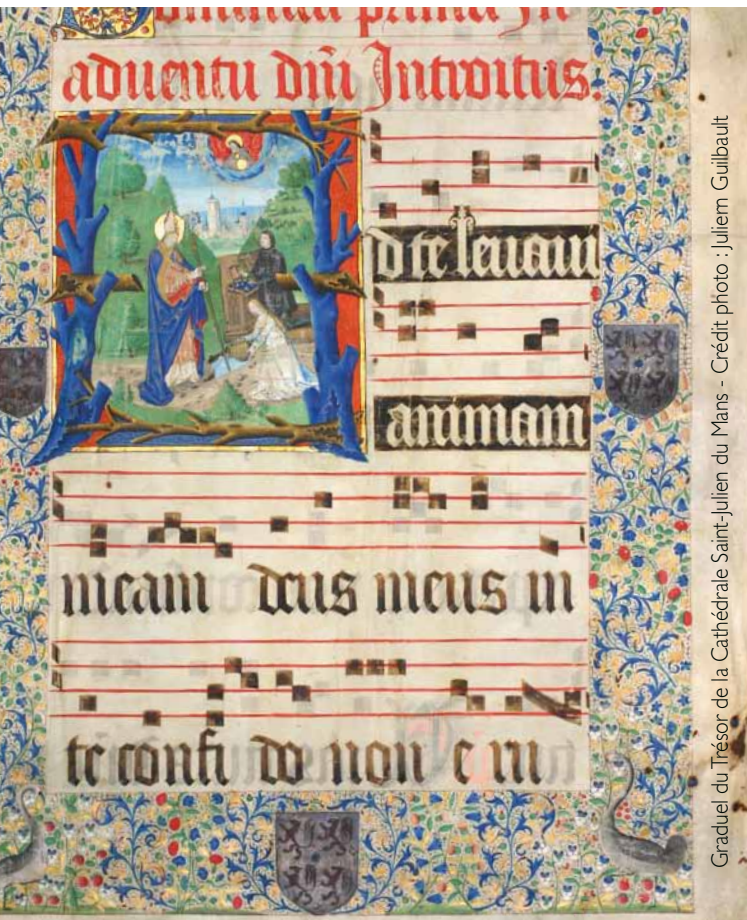 Dominica prima In
aduentu dñi Introitus.
Ad te leuaui
animam
meam deus meus in
te confi do non e ru
Graduel du Trésor de la Cathédrale Saint-Julien du Mans - Crédit photo : Juliem Guilbault